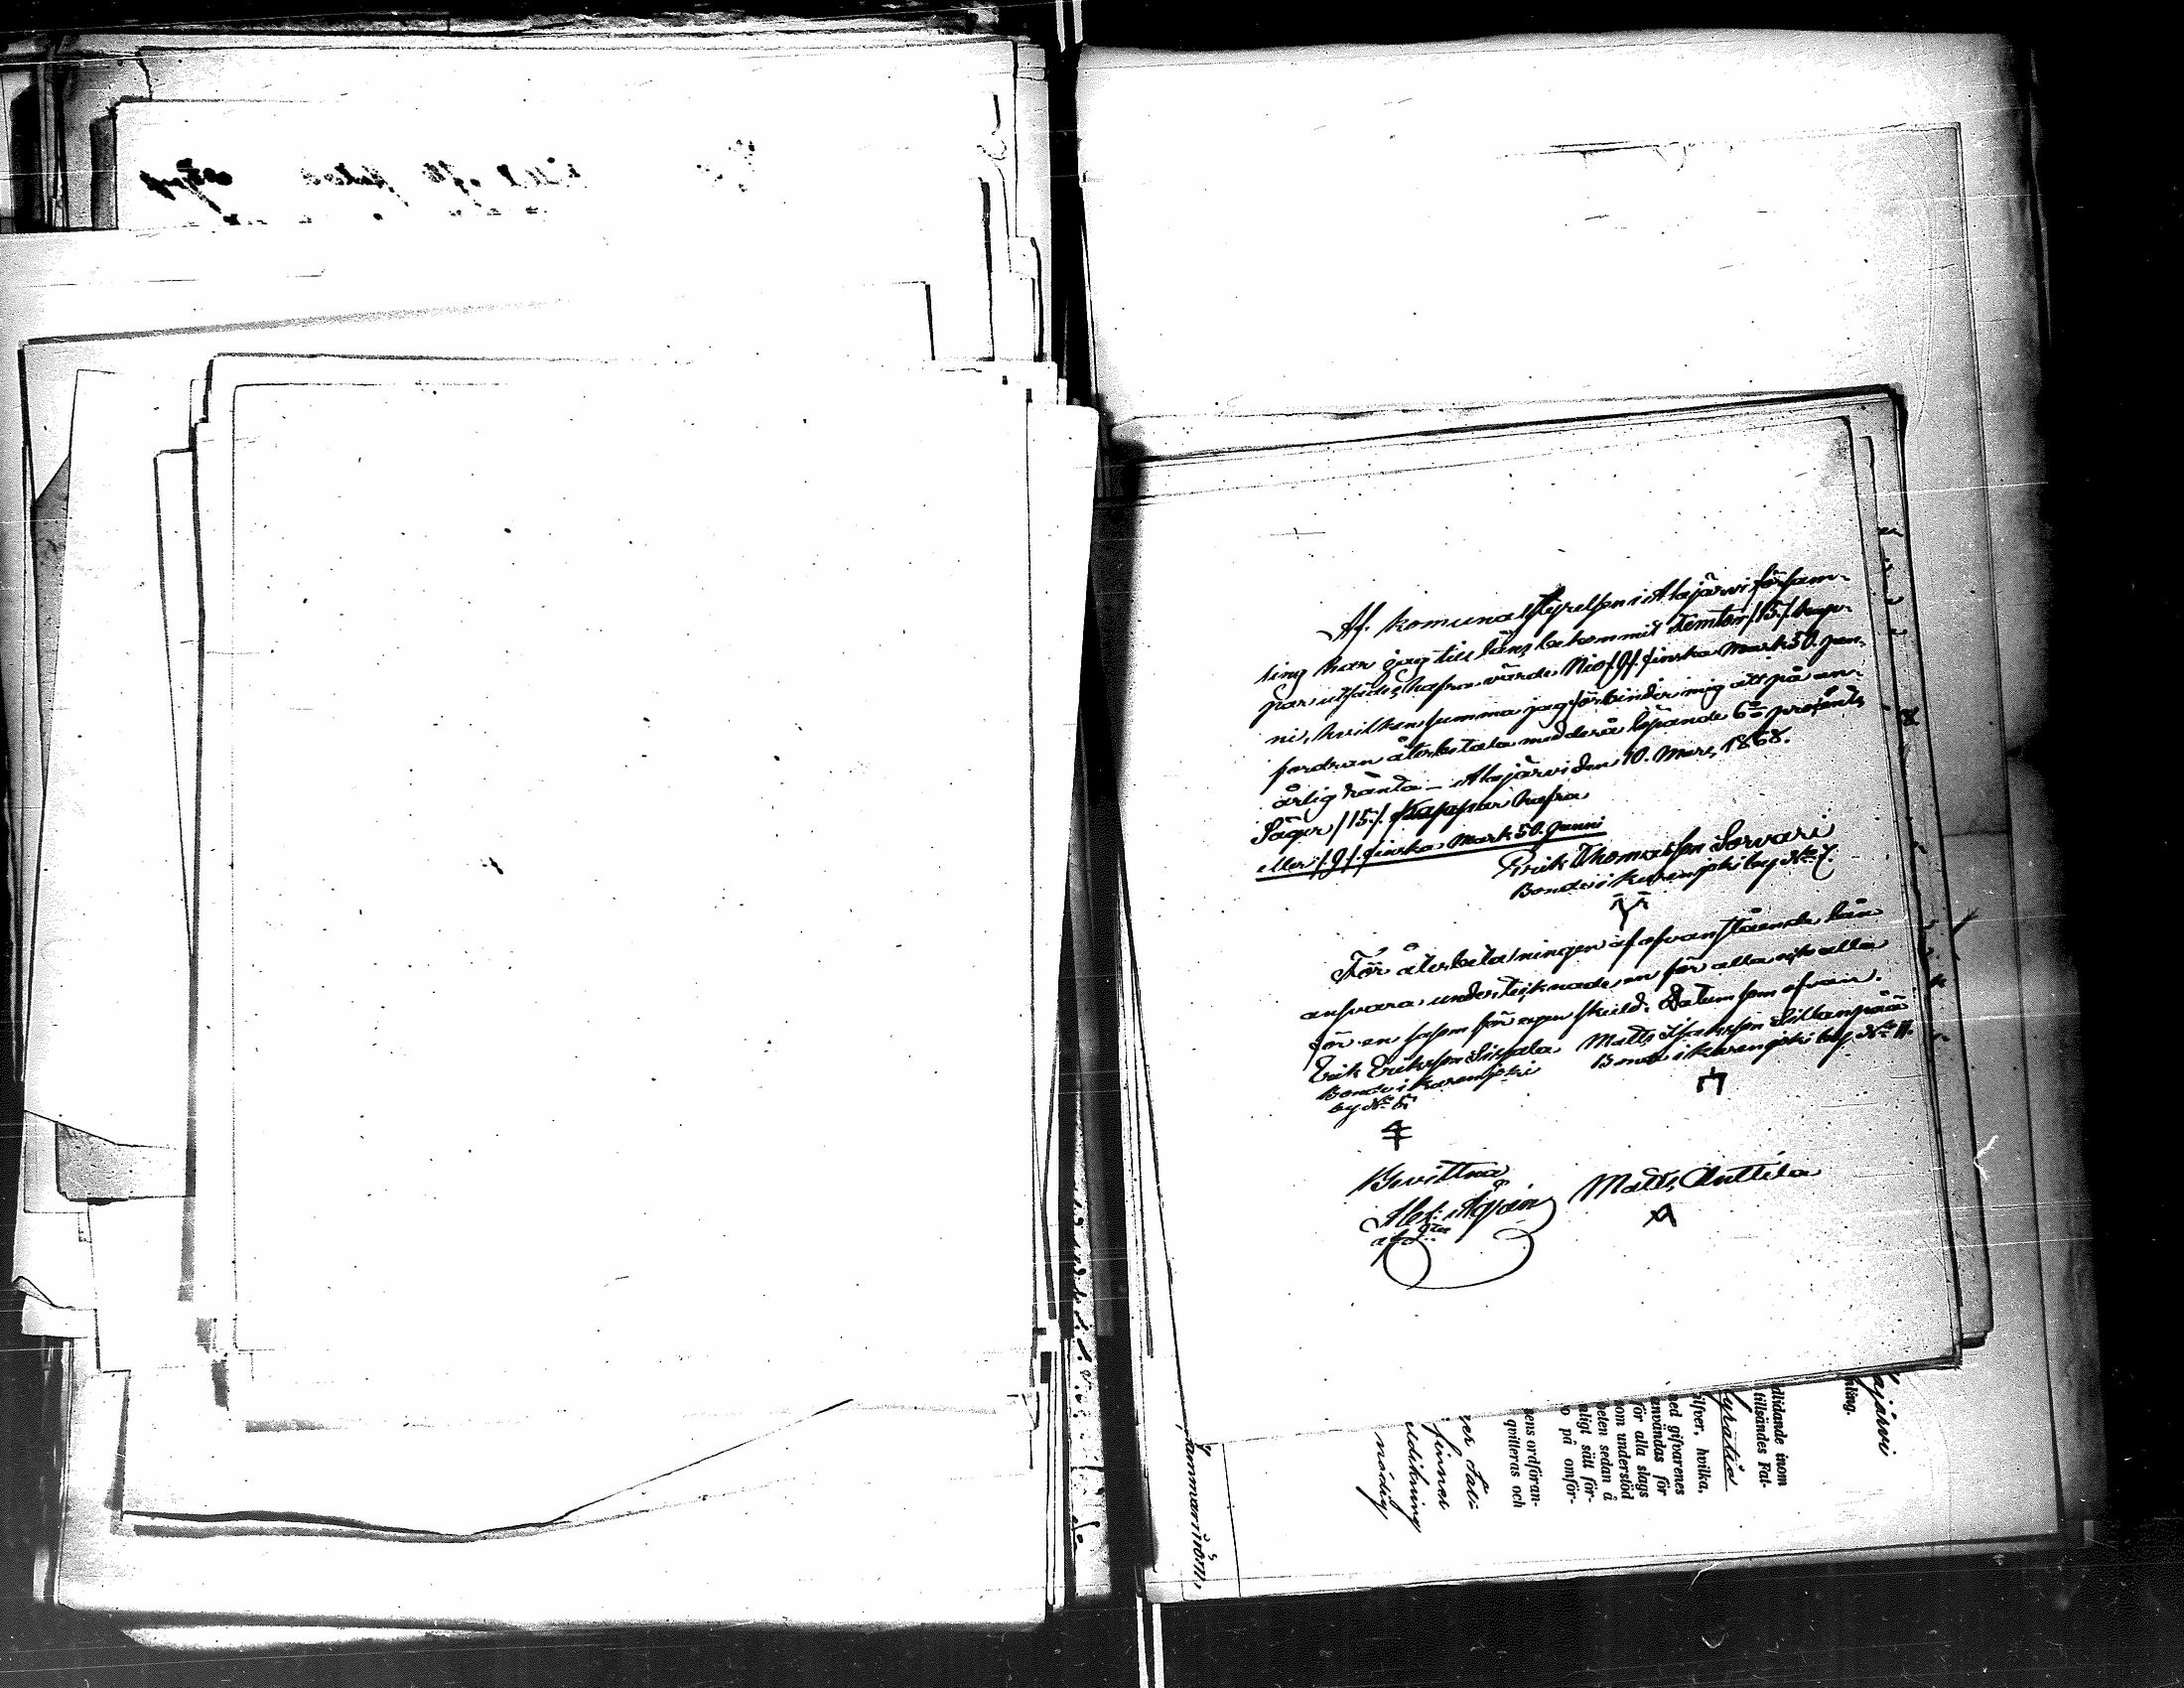 Af. Komunalstyrelsen i Alajärvi försam-
ling har jag till låns bekommit Femton /15/ kap-
par utsädes hafra värde Nio /9/ finska Mark 50. pen-
ni, hvilken summa jag förbinder mig att på an-
fordran återbetala med derå löpande 6 procents
årlig ränta – Alajärvi den 10. Mars 1868.
Säger /15/ Kappar hafra
eller /9/ finska Mark 50. penni
Erik Thomasson Sorvari
Bonde i Kurenjoki by No 7.
För återbetalningen af ofvanstående lån
ansvara undertecknade, en för alla och alla
för en såsom för egen skuld. Datum som ofvan.
Erik Eriksson Sissala Matts Isaksson Sillanpää
Bonde i Kurenjoki Bonde i Kurenjoki by No 11.
by No 6.
Bevittna
Matts Anttila
ajärvi
ling.
dlidande inom
tillsändes Fat-
ilfver, hvilka,
ned gifvarenes
användas för
för alla slags
om understöd
eten sedan å
nligt sätt för-
o på omför-
sens ordföran-
qvitteras och
finnes
utdikning
nödig